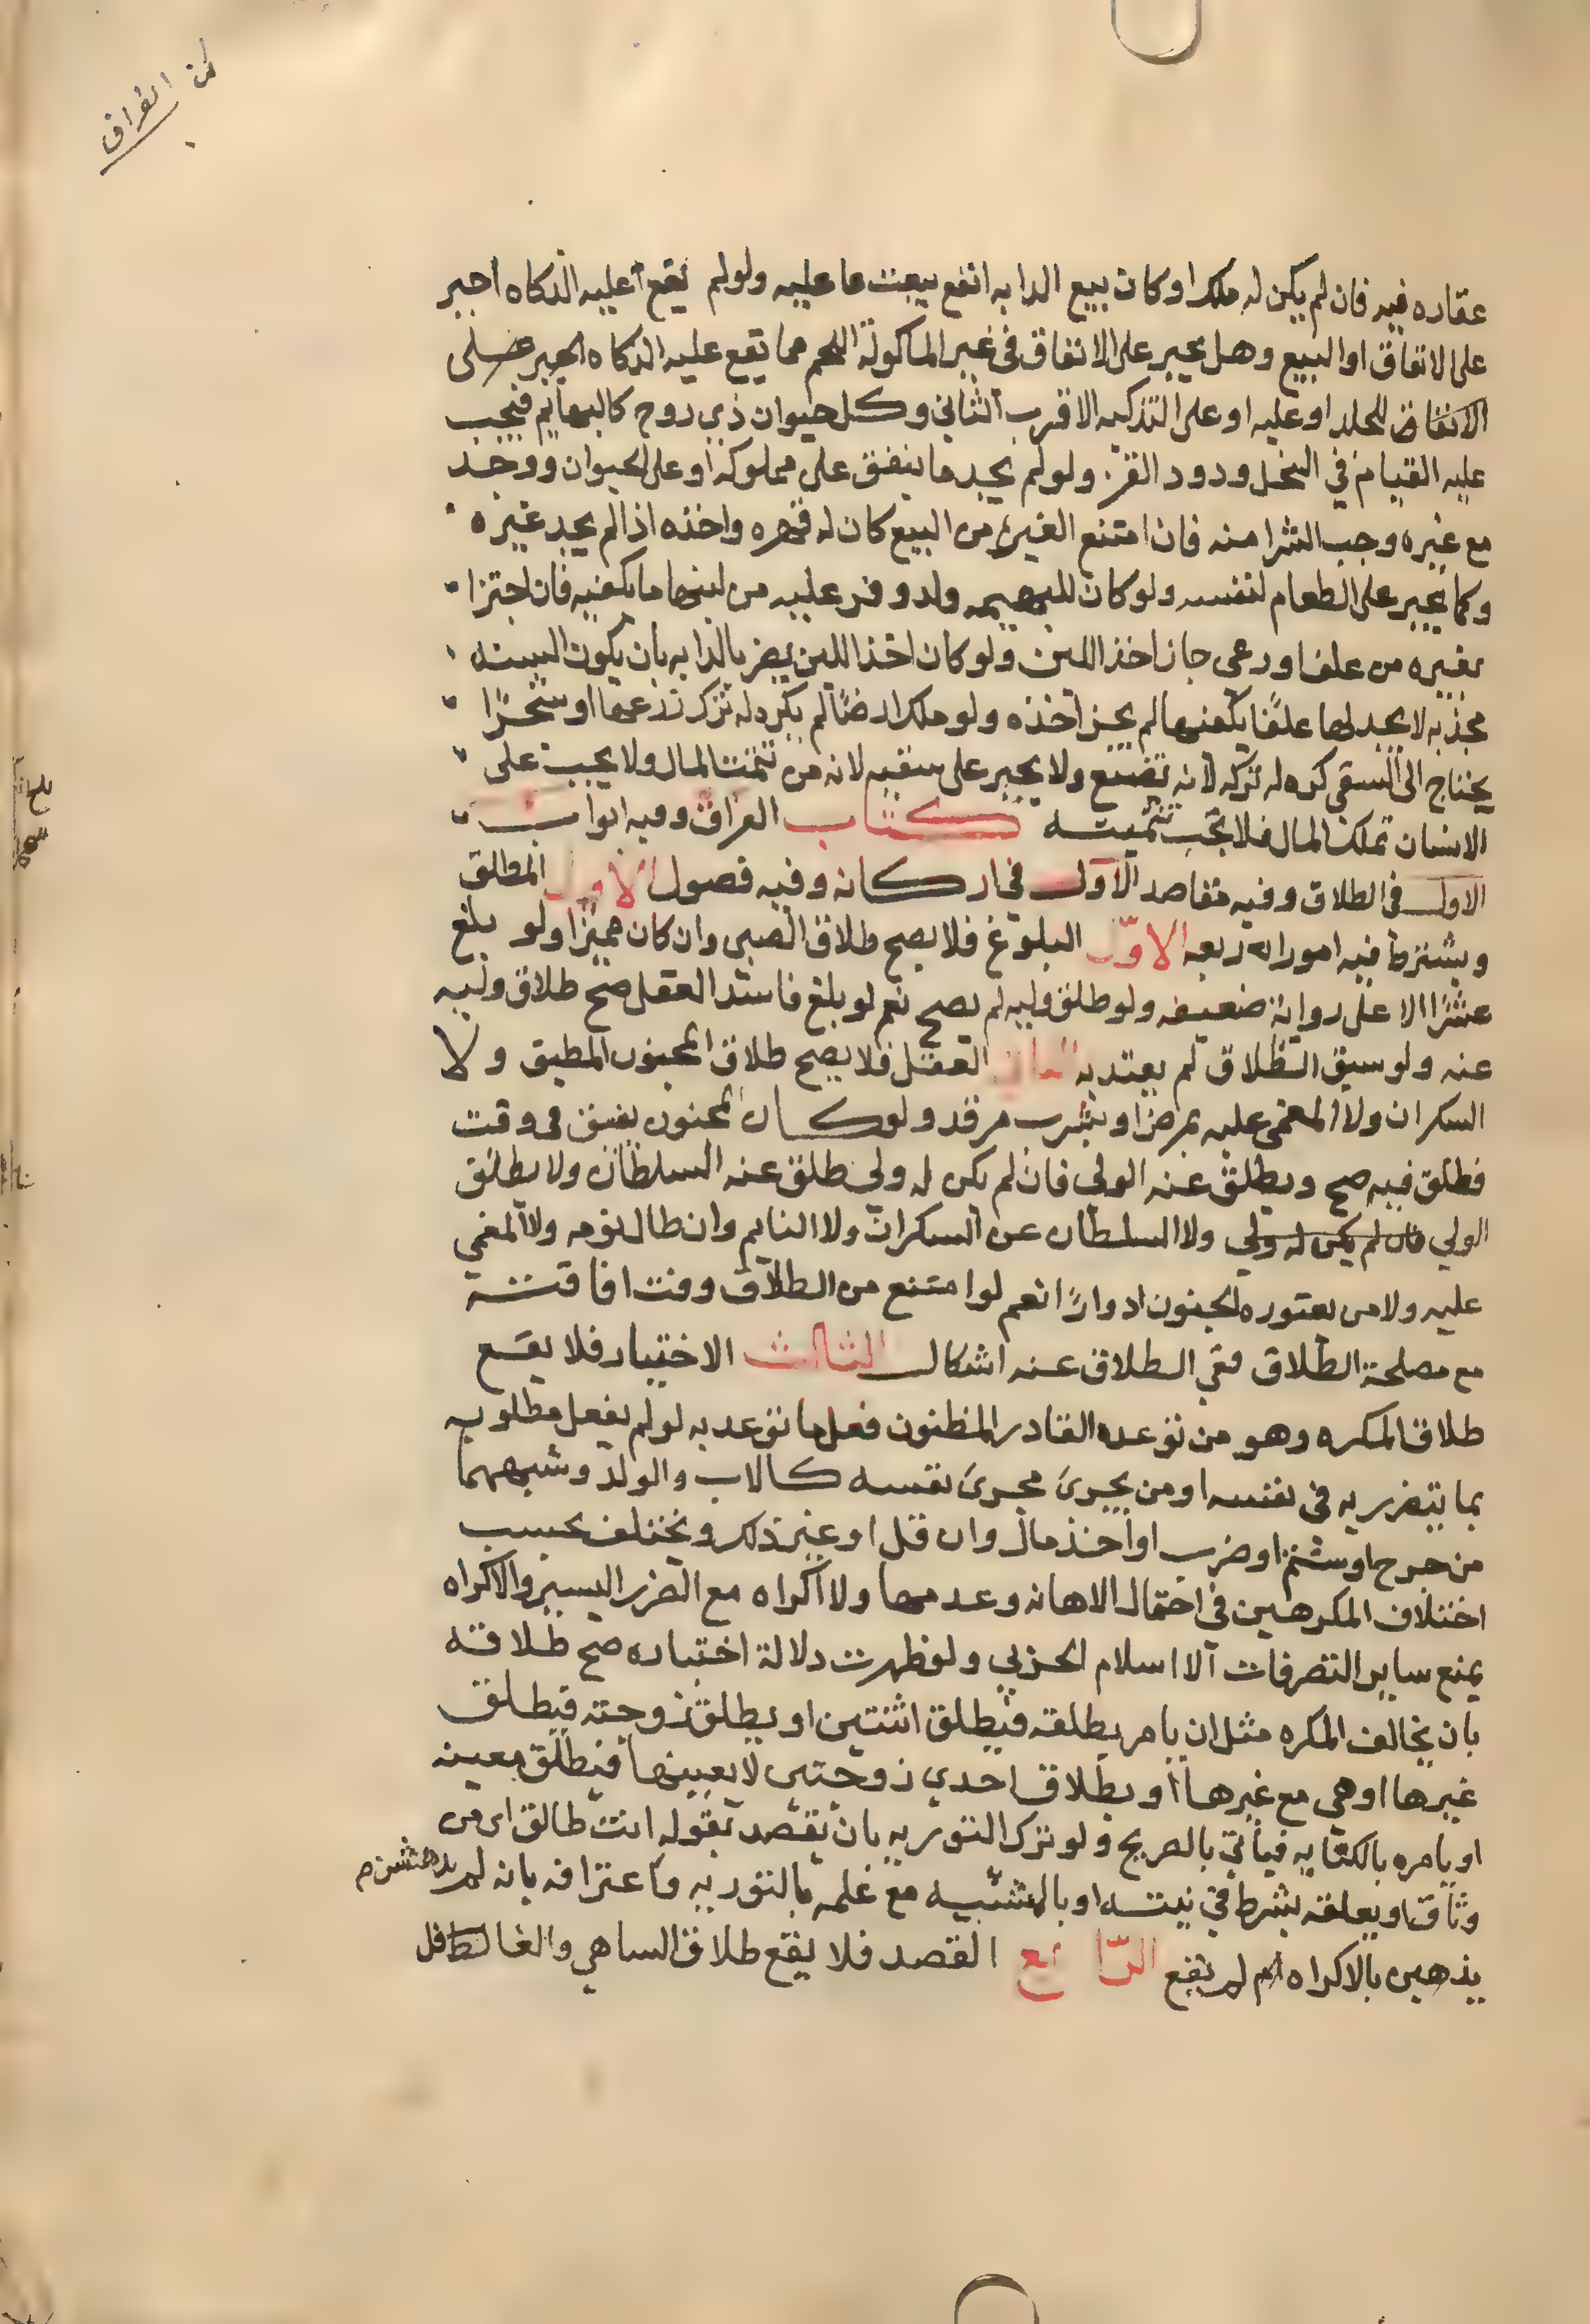 من الفراق
عقاره فيه فان لم يكن له ملك او كان بيع الدابه انفع بيعت عليه ولو لم تقع عليه الذكاه اجبر
على الانفاق او البيع وهل يجبر على الانفاق في غير الماكولة اللحم مما تقع عليه الذكاه ايجبر على
الانفاق للجلد او عليه او على التذكيه الاقرب الثاني وكل حيوان ذي روح كالبهايم فيجب
عليه القيام في النحل ودود القز ولو لم يجد ما ينفق على مملوكه او على الحيوان ووجد
مع غيره وجب الشرا منه فان امتنع الغير من البيع كان له قهره واخذه اذا لم يجد غيره
وكما يجبر على الطعام لنفسه ولو كان للبهيمه ولد وفر عليه من لبنها ما يكفيه فان اجتزا
بغيره من علف او رعى جاز اخذ اللبن ولو كان اخذ اللبن يضر بالدابه بان يكون السنه
مجذبه لا يجد لها علفا يكفيها لم يجز اخذه ولو ملك ارضا لم يكره له ترك زرعها او شجرا
يحتاج الى السقي كره له تركه لانه تضييع ولا يجبر على سقيه لانه من تنميت المال ولا يجب على
الانسان تملك المال فلا تجب تنميته كتاب الفراق وفيه ابواب
الاول في الطلاق وفيه مقاصد الاول في اركانه وفيه فصول الاول المطلق
ويشترط فيه امور اربعه الاول البلوغ فلا يصح طلاق الصبي وان كان مميزا ولو بلغ
عشرا الا على رواية ضعيفه ولو طلق وليه لم يصح نعم لو بلغ فاسد العقل صح طلاق وليه
عنه ولو سبق الطلاق لم يعتد به الثاني العقل فلا يصح طلاق المجنون المطبق ولا
السكران ولا المغمى عليه بمرض او شرب مرقد ولو كان المجنون يفيق في وقت
فطلق فيه صح ويطلق عنه الولي فان لم يكن له ولي طلق عنه السلطان ولا يطلق
الولي فان لم يكن له ولي ولا السلطان عن السكران ولا النايم وان طال نومه ولا المغمى
عليه ولا من يعتوره الجنون ادوارا نعم لو امتنع من الطلاق وقت افاقته
مع مصلحة الطلاق ففي الطلاق عنه اشكال الثالث الاختيار فلا يقع
طلاق المكره وهو من توعده القادر المظنون فعل ما توعد به لو لم يفعل مطلوبه
بما يتضرر به في نفسه او من يجري مجرى نفسه كالاب والولد وشبههما
من جرح او شتم او ضرب او اخذ مال وان قل او غير ذلك ويختلف بحسب
اختلاف المكرهين في احتمال الاهانه وعدمها ولا اكراه مع الضرر اليسير والاكراه
يمنع ساير التصرفات الا اسلام الحربي ولو ظهرت دلالة اختياره صح طلاقه
بان يخالف المكره مثل ان يامر بطلقه فيطلق اثنتين او يطلق زوجته فيطلق
غيرها او هي مع غيرها او بطلاق احدي زوجتيه لا بعينها فيطلق معينه
او يامره بالكنايه فياتي بالصريح ولو ترك التوريه بان يقصد بقوله انت طالق اي من
وثاق او يعلقه بشرط في نيته او بالمشيه مع علمه بالتوريه واعترافه بانه لم يدهش م
يذهن بالاكراه لم يقع الرابع القصد فلا يقع طلاق الساهي والغافل